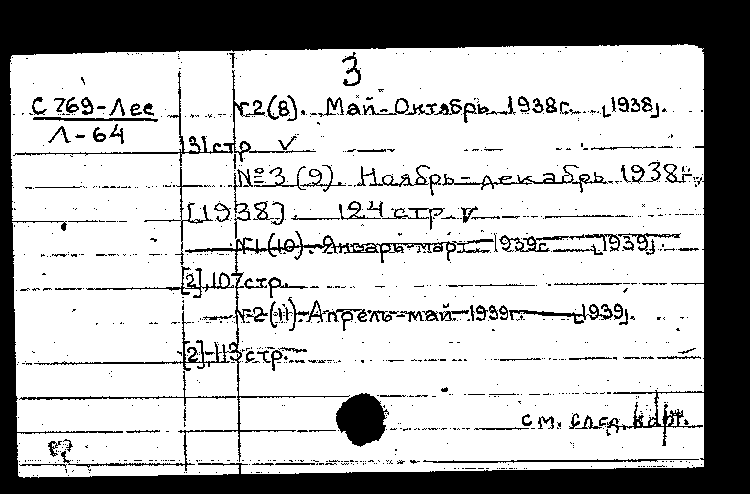 3
С 769-Лее
Л-64
№2(8). Май-Октябрь 1938г. [1938].
131стр V
№3(9). Ноябрь-декабрь 1938г.,
[1938]. 124 стр V
№1(10). Январь-март 1939г. [1939].
[2], 107стр.
№2(11). Апрель-май 1939г. [1939].
[2], 113стр.
см. след. карт.